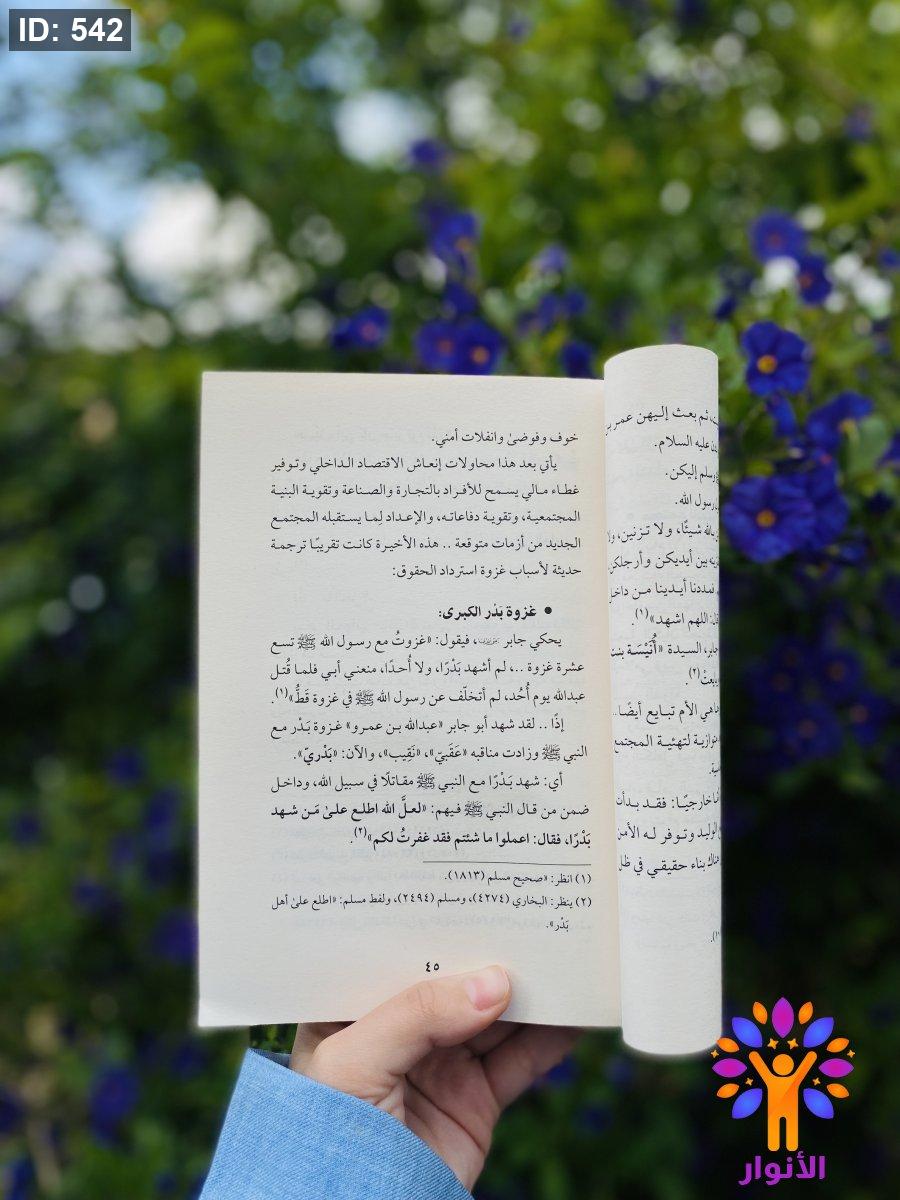 ID: 542
خوف وفوضىٰ وانفلات أمني.
يأتي بعد هذا محاولات إنعاش الاقتصاد الداخلي وتوفير
غطاء مالي يسمح للأفراد بالتجارة والصناعة وتقوية البنية
المجتمعية، وتقوية دفاعاته، والإعداد لِما يستقبله المجتمع
الجديد من أزمات متوقعة .. هذه الأخيرة كانت تقريبًا ترجمة
حديثة لأسباب غزوة استرداد الحقوق:
● غزوة بَدْر الكبرى:
يحكي جابر، فيقول: «غزوتُ مع رسول الله ﷺ تسع
عشرة غزوة ..، لم أشهد بَدْرًا، ولا أُحدًا، منعني أبي فلما قُتل
عبدالله يوم أُحُد، لم أتخلّف عن رسول الله ﷺ في غزوة قَطُّ»(١).
إذًا .. لقد شهد أبو جابر «عبدالله بن عمرو» غزوة بَدْر مع
النبي ﷺ وزادت مناقبه «عَقَبيّ»، «نَقِيب»، والآن: «بَدْريّ».
أي: شهد بَدْرًا مع النبي ﷺ مقاتلًا في سبيل الله، وداخل
ضمن من قال النبي ﷺ فيهم: «لعلَّ الله اطلع علىٰ مَن شهد
بَدْرًا، فقال: اعملوا ما شئتم فقد غفرتُ لكم»(٢).
(١) انظر: «صحيح مسلم (١٨١٣).
(٢) ينظر: البخاري (٤٢٧٤)، ومسلم (٢٤٩٤)، ولفظ مسلم: «اطلع علىٰ أهل
بَدْر».
٤٥
ثم بعث إليهن عمر بن
عليه السلام.
وسلم إليكن.
رسول الله.
بالله شيئًا، ولا تزنين،
بين أيديكن وأرجلكن
فمددنا أيدينا من داخل
اللهم اشهد»(١).
جابر، السيدة «أُنَيْسَة بنت
(٢).
هي الأم تبايع أيضًا..
متوازية لتهيئة المجتمع
خارجيًا: فقد بدأت
الوليد وتوفر له الأمن
هناك بناء حقيقي في ظل
الأنوار